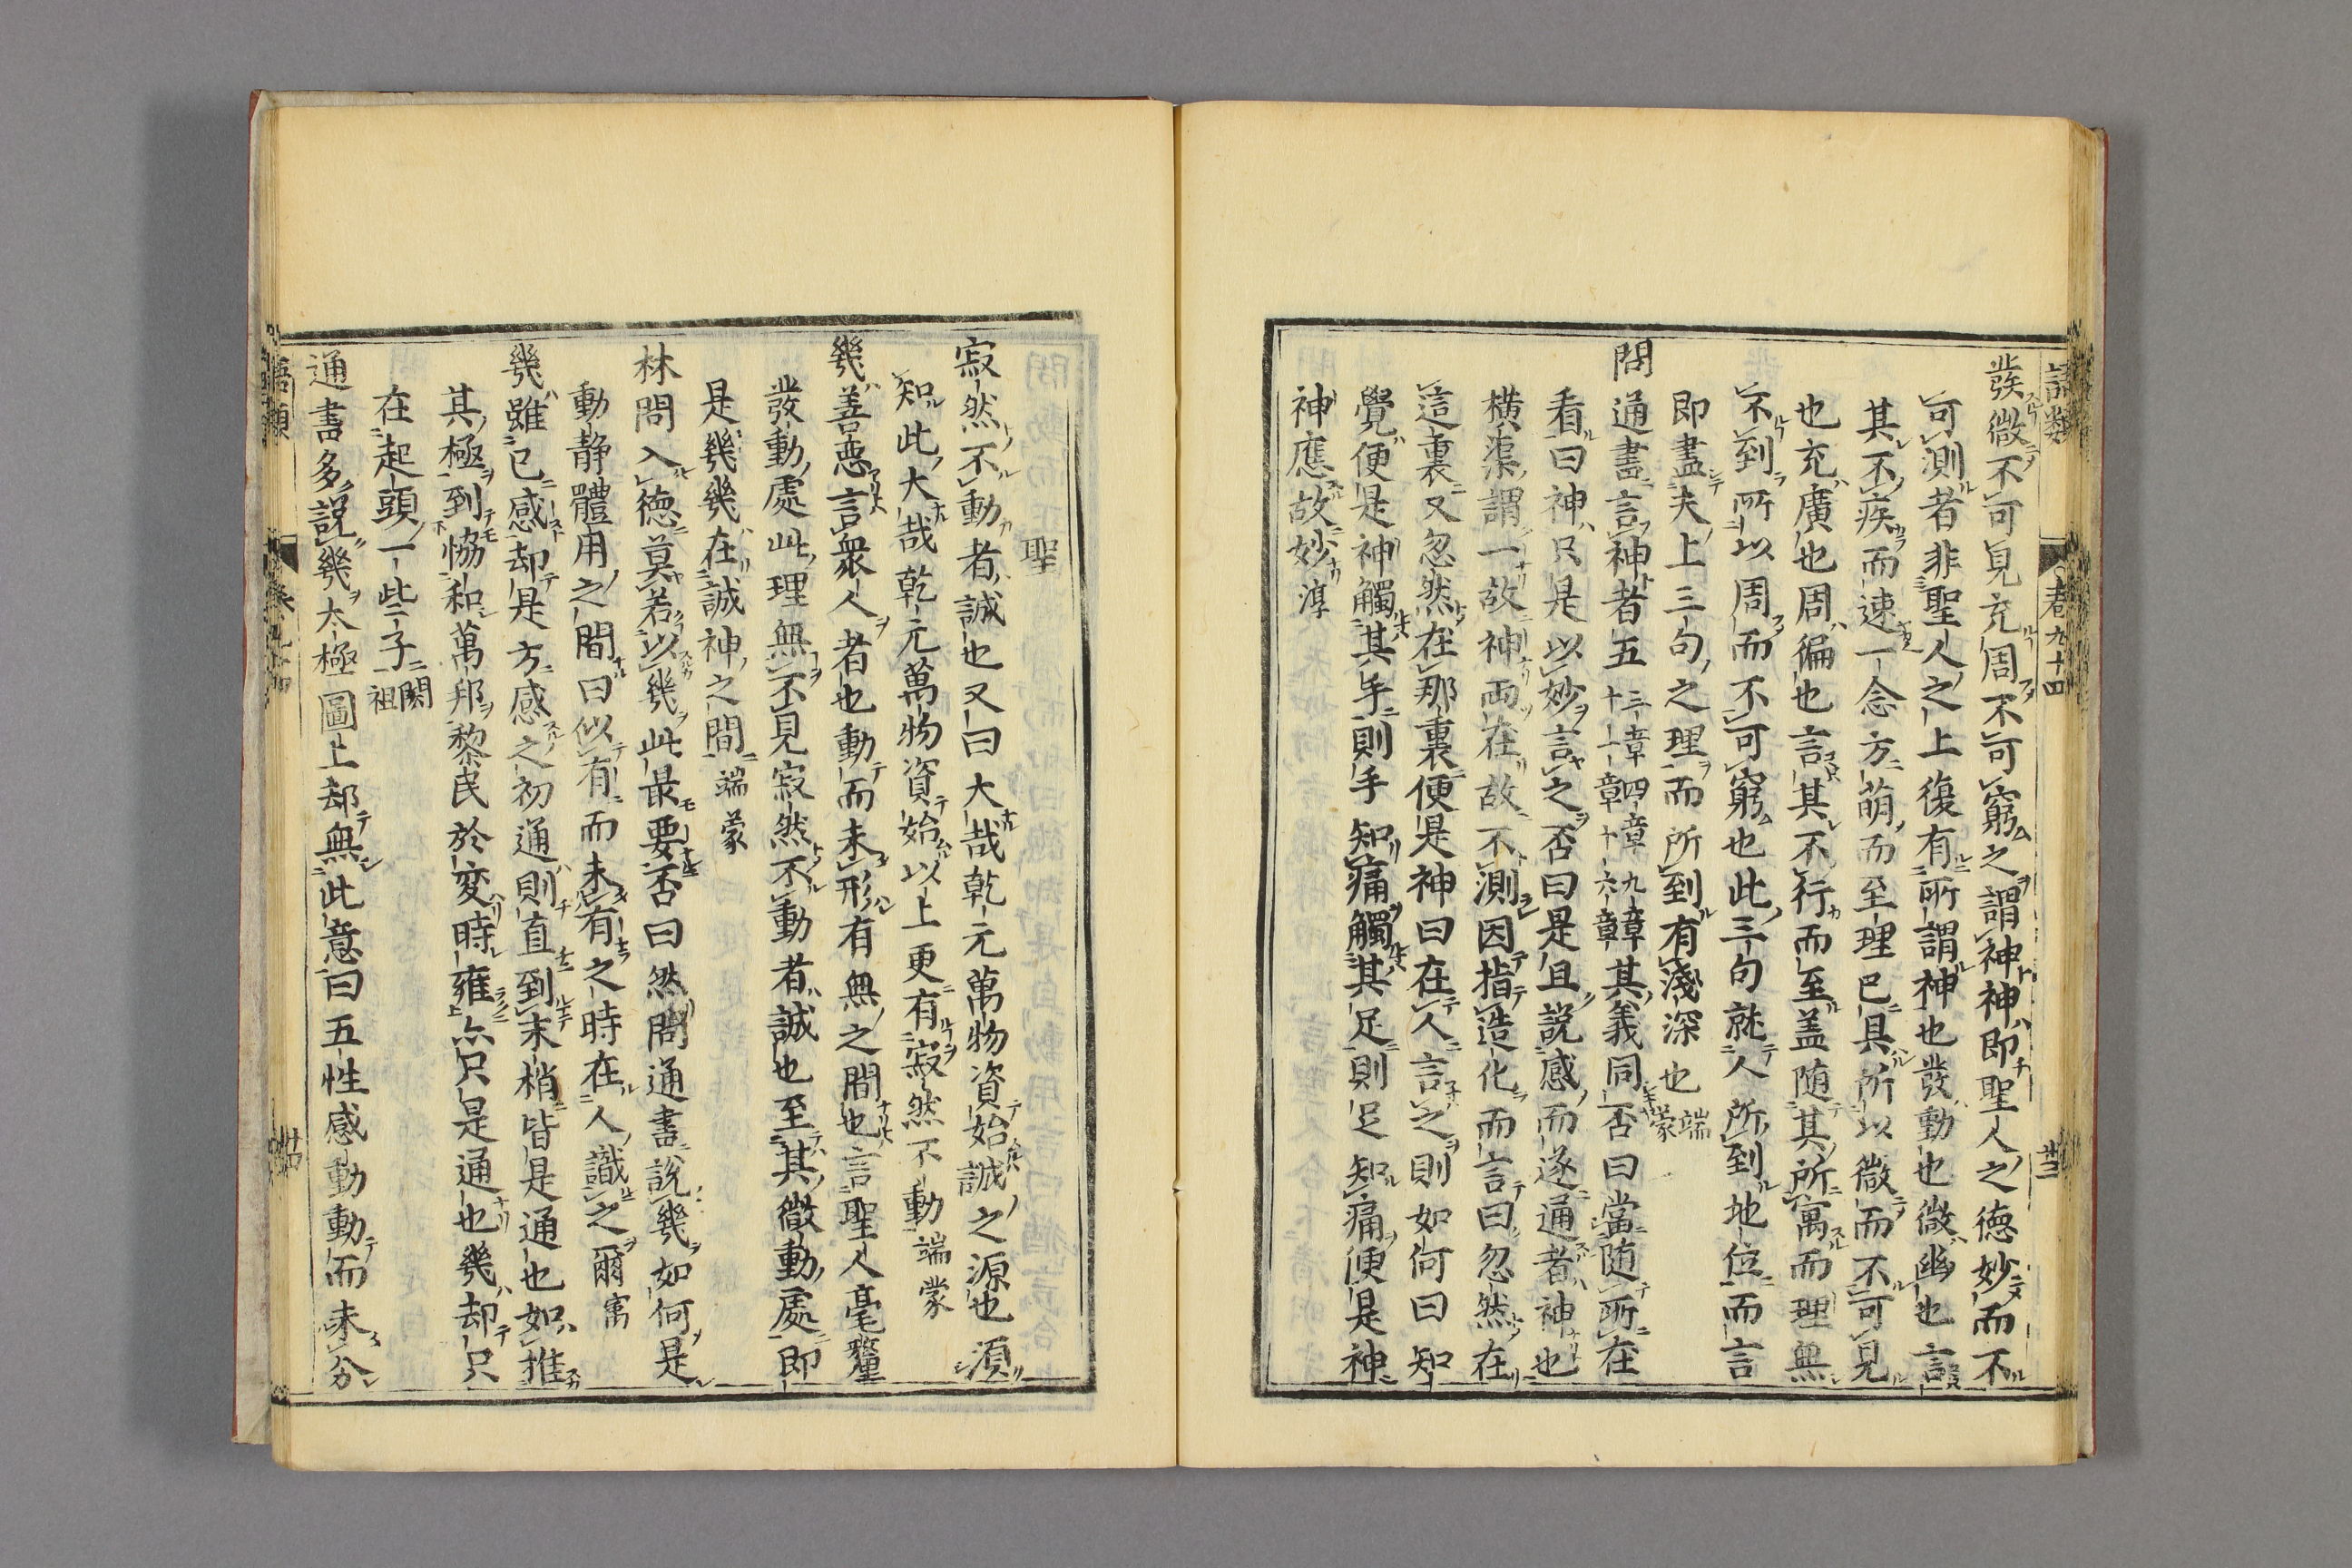 語類
卷九十四
廿三
發微不可見充周不可窮之謂神神即聖人之德妙而不
可測者非聖人之上復有所謂神也發動也微幽也言
其不疾而速一念方萌而至理已具所以微而不可見
也充廣也周徧也言其不行而至盖随其所寓而理無
不到所以周而不可窮也此三句就人所到地位而言
即盡夫上三句之理而所到有淺深也端蒙
問通書言神者五三章四章九章十一章十六章其義同否曰當随所在
看曰神只是以妙言之否曰是且説感而遂通者神也
横渠謂一故神兩在故不測因指造化而言曰忽然在
這裏又忽然在那裏便是神曰在人言之則如何曰知
覺便是神觸其手則手知痛觸其足則足知痛便是神
神應故妙淳
聖
寂然不動者誠也又曰大哉乾元萬物資始誠之源也須
知此大哉乾元萬物資始以上更有寂然不動端蒙
幾善惡言衆人者也動而未形有無之間也言聖人毫釐
發動處此理無不見寂然不動者誠也至其微動處即
是幾幾在誠神之間端蒙
林問入德莫若以幾此最要否曰然問通書説幾如何是
動静體用之間曰似有而未有之時在人識之爾㝢
幾雖已感却是方感之初通則直到末梢皆是通也如推
其極到恊和萬邦黎民於変時雍亦只是通也幾却只
在起頭一些子閎祖
通書多説幾太極圖上却無此意曰五性感動動而未分
語類
卷九十四
廿四